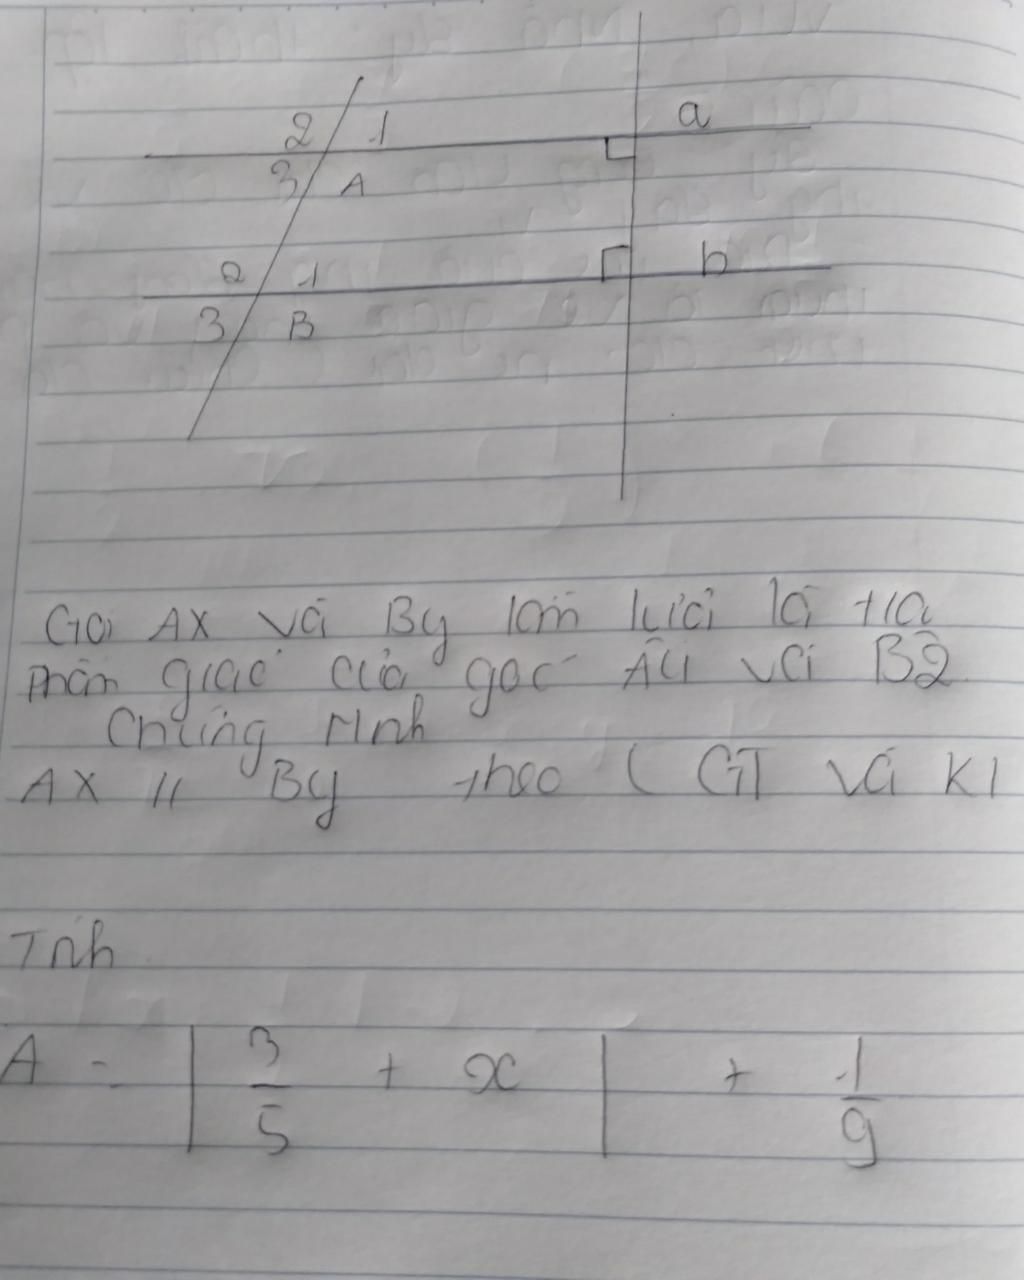 2 1 a
3 A
2 1 b
3 B
Gọi AX và By lần lượt là tia
phân giác của góc Â4 và B2
Chứng minh
AX // By theo ( GT và Kl
Tính
A = | 3/5 + x | + 1/9